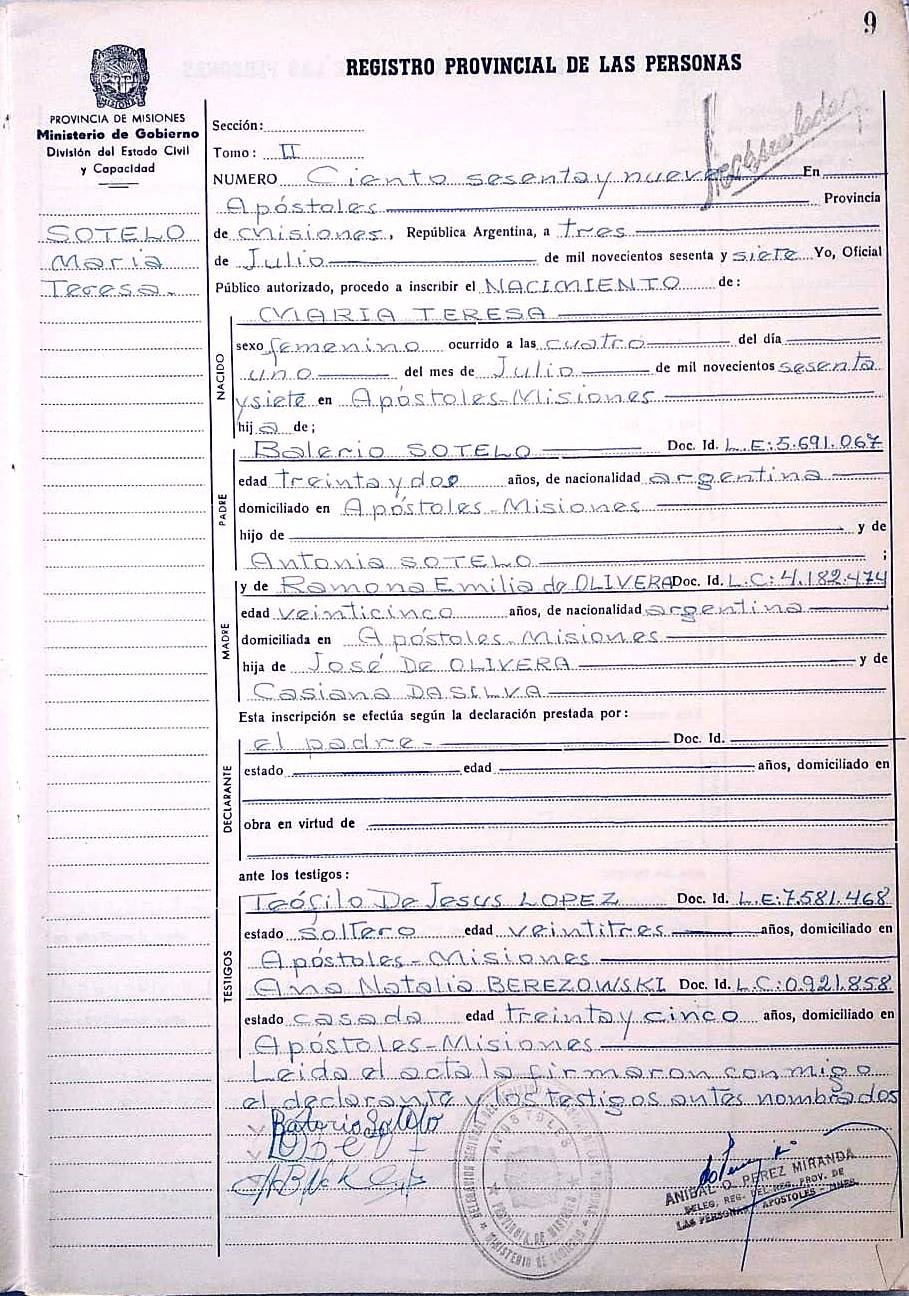 9
REGISTRO PROVINCIAL DE LAS PERSONAS
PROVINCIA DE MISIONES
Ministerio de Gobierno
División del Estado Civil
y Capacidad
SOTELO
Maria
Teresa.-
Sección:
Tomo: II
NUMERO Ciento sesenta y nueve En
Apóstoles Provincia
de Misiones, República Argentina, a tres
de Julio de mil novecientos sesenta y siete Yo, Oficial
Público autorizado, procedo a inscribir el NACIMIENTO de:
NACIDO
MARIA TERESA
sexo femenino ocurrido a las cuatro del día
uno del mes de Julio de mil novecientos sesenta
y siete en Apóstoles-Misiones
hija de;
PADRE
Balerio SOTELO Doc. Id. L.E:5.691.067
edad treinta y dos años, de nacionalidad argentina
domiciliado en Apóstoles-Misiones
hijo de y de
Antonia SOTELO ;
MADRE
y de Ramona Emilia de OLIVERA Doc. Id. L.C:4.182.474
edad veinticinco años, de nacionalidad argentina
domiciliada en Apóstoles-Misiones
hija de José DE OLIVERA y de
Casiana DASILVA
Esta inscripción se efectúa según la declaración prestada por:
DECLARANTE
el padre- Doc. Id.
estado edad años, domiciliado en
obra en virtud de
ante los testigos:
TESTIGOS
Teófilo De Jesus LOPEZ Doc. Id. L.E:7.581.468
estado soltero edad veintitres años, domiciliado en
Apóstoles-Misiones
Ana Natalia BEREZOWSKI Doc. Id. L.C:0.921.858
estado casada edad treinta y cinco años, domiciliado en
Apóstoles-Misiones
Leida el acta la firmaron conmigo
el declarante y los testigos antes nombrados
APOSTOLES
PROVINCIA DE MISIONES
MINISTERIO DE GOBIERNO
ANIBAL O. PEREZ MIRANDA
DELEG. REG. DEL REG. PROV. DE
LAS PERSONAS APOSTOLES - MNES.